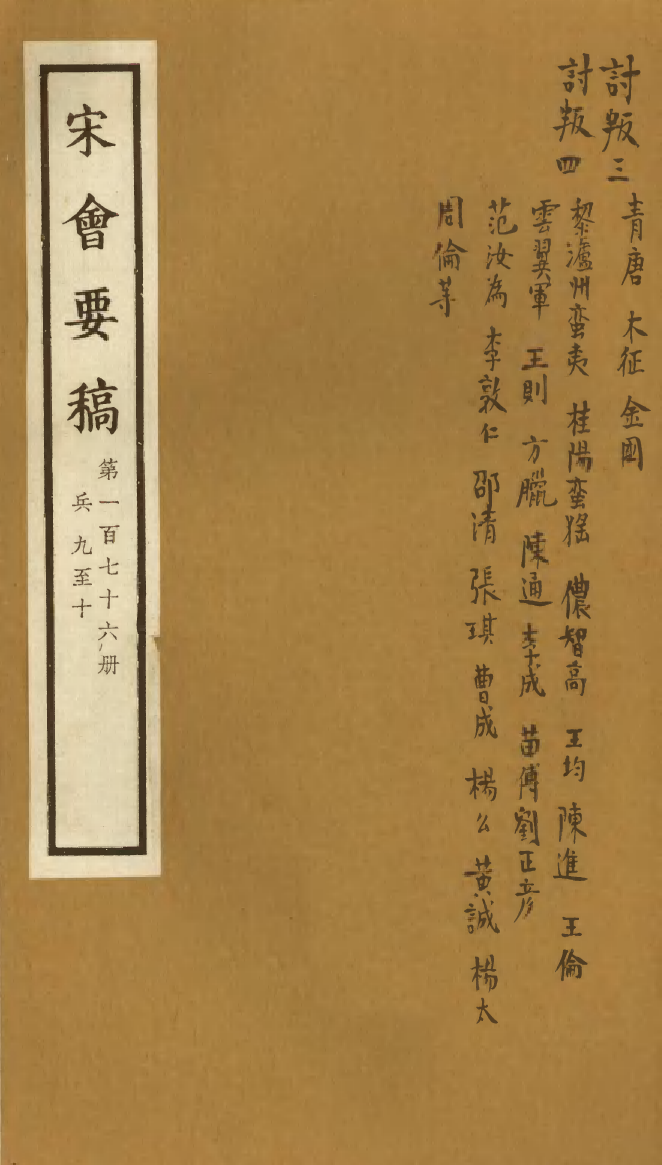 討叛三 青唐 木征 金國
討叛四 黎瀘州蛮夷 桂陽蛮猺 儂智高 王均 陳進 王倫
雲翼軍 王則 方臘 陳通 李成 苗傅劉正彦
范汝為 李敦仁 邵清 張琪 曹成 楊么 黃誠 楊太
周倫等
宋會要稿
第一百七十六册
兵九至十